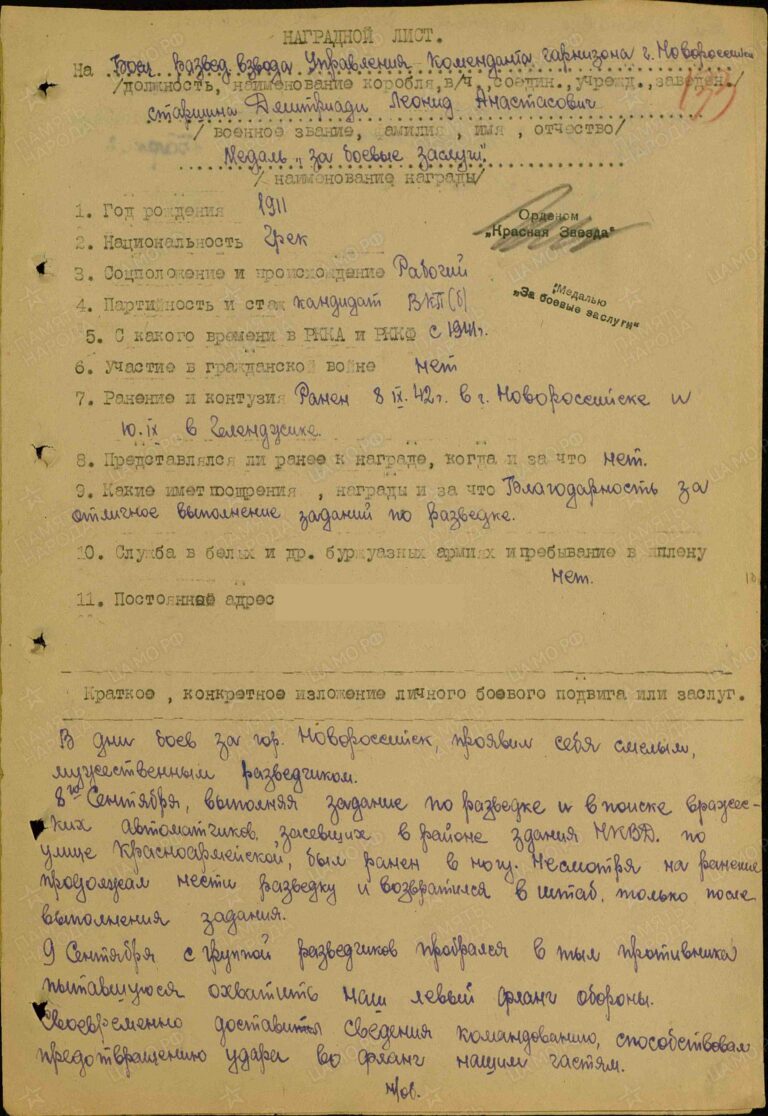 НАГРАДНОЙ ЛИСТ.
На Боец развед взвода Управления Коменданта гарнизона г. Новороссийска
/должность, наименование корабля, в/ч, соедин., учрежд., заведен./
старшина Дмитриади Леонид Анастасович
/ военное звание, фамилия, имя, отчество/
Медаль „за боевые заслуги".
/ наименование награды/
1. Год рождения 1911
Орденом
„Красная Звезда"
2. Национальность Грек
3. Соцположение и происхождение Рабочий
4. Партийность и стаж кандидат ВКП(б)
Медалью
„За боевые заслуги"
5. С какого времени в РККА и РККФ с 1941г.
6. Участие в гражданской войне нет
7. Ранение и контузия Ранен 8 IX. 42г. в г. Новороссийске и
10. IX в Геленджике.
8. Представлялся ли ранее к награде, когда и за что нет.
9. Какие имет поощрения, награды и за что Благодарность за
отличное выполнение заданий по разведке.
10. Служба в белых и др. буржуазных армиях и пребывание в плену
нет.
11. Постоянный адрес
Краткое, конкретное изложение личного боевого подвига или заслуг.
В дни боев за гор. Новороссийск, проявил себя смелым,
мужественным разведчиком.
8го Сентября, выполняя задание по разведке и в поиске вражес-
ких автоматчиков, засевших в районе здания НКВД. по
улице Красноармейской, был ранен в ногу. Несмотря на ранение
продолжал нести разведку и возвратился в штаб, только после
выполнения задания.
9 Сентября с группой разведчиков пробрался в тыл противника
пытавшуюся охватить наш левый фланг обороны.
Своевременно доставить сведения командованию, способствовал
предотвращению удара во фланг нашим частям.